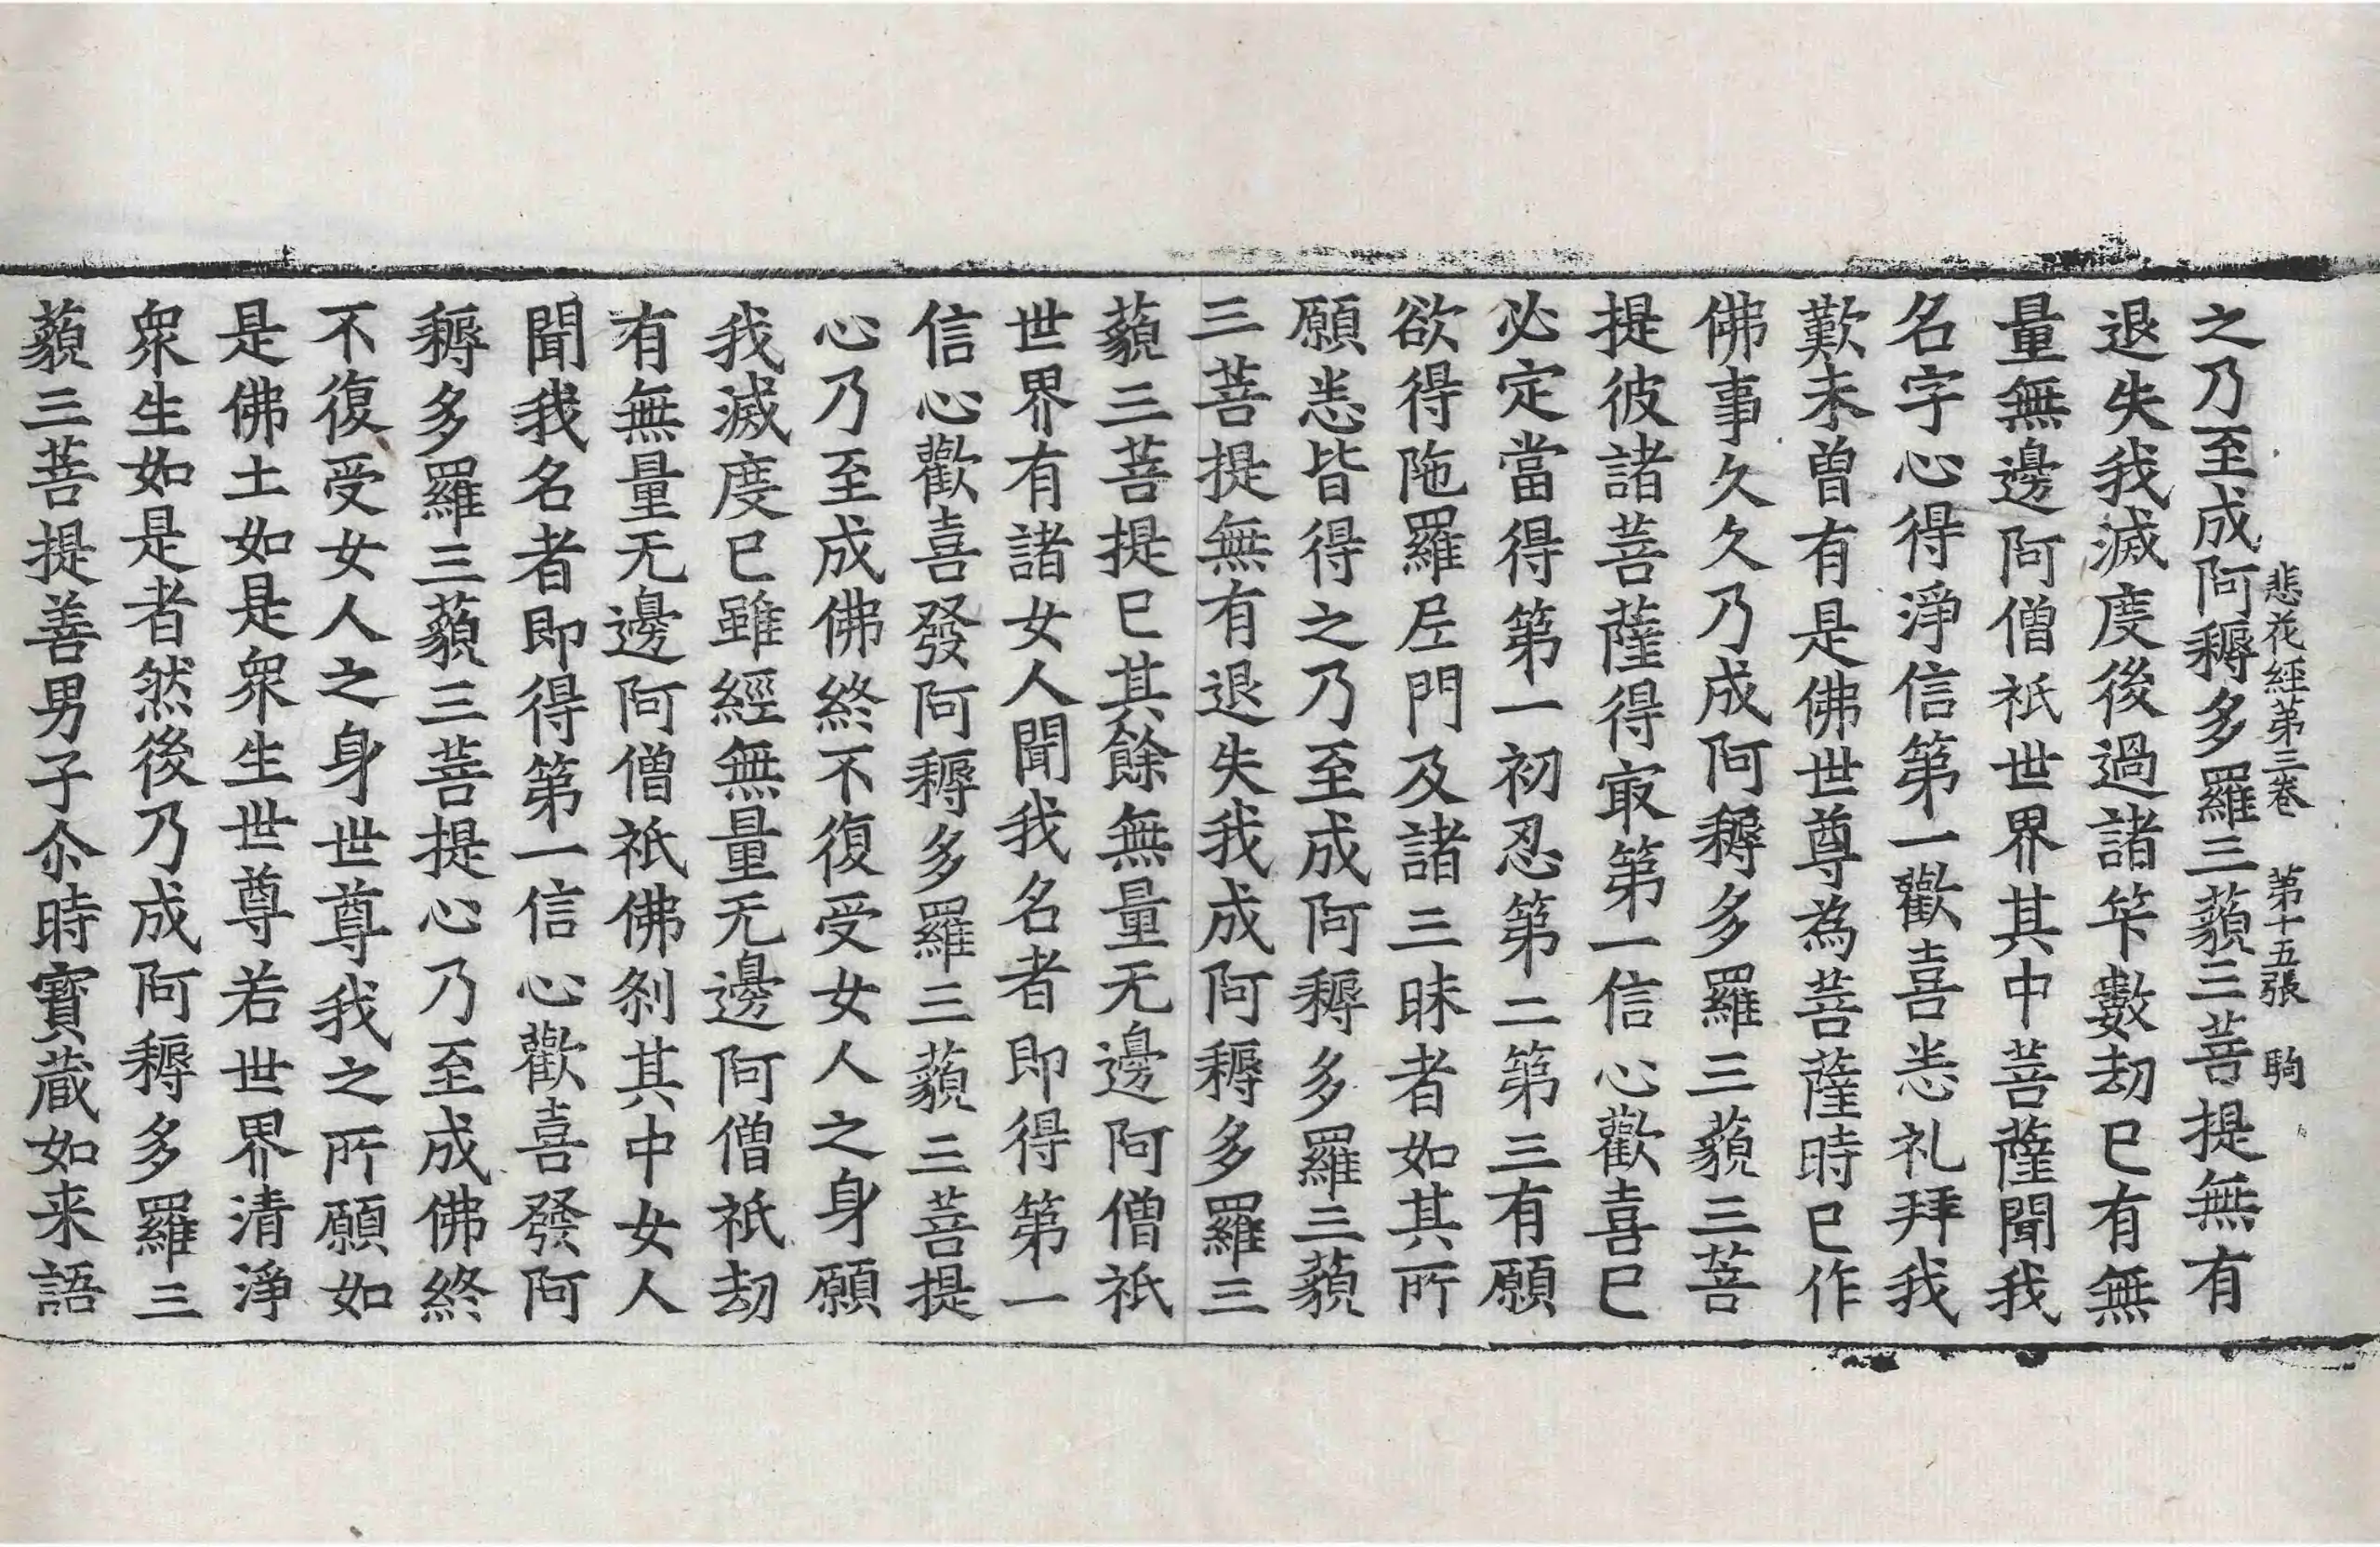 悲花經第三卷　第十五張　駒
之乃至成阿耨多羅三藐三菩提無有
退失我滅度後過諸筭數劫已有無
量無邊阿僧祇世界其中菩薩聞我
名字心得淨信第一歡喜悉礼拜我
歎未曽有是佛世尊為菩薩時已作
佛事久久乃成阿耨多羅三藐三菩
提彼諸菩薩得㝡第一信心歡喜已
必定當得第一初忍第二第三有願
欲得陁羅𡰱門及諸三昧者如其所
願悉皆得之乃至成阿耨多羅三藐
三菩提無有退失我成阿耨多羅三
藐三菩提已其餘無量无邊阿僧祇
世界有諸女人聞我名者即得第一
信心歡喜發阿耨多羅三藐三菩提
心乃至成佛終不復受女人之身願
我滅度已雖經無量无邊阿僧祇劫
有無量无邊阿僧祇佛刹其中女人
聞我名者即得第一信心歡喜發阿
耨多羅三藐三菩提心乃至成佛終
不復受女人之身世尊我之所願如
是佛土如是衆生世尊若世界清淨
衆生如是者然後乃成阿耨多羅三
藐三菩提善男子尒時寳蔵如来語